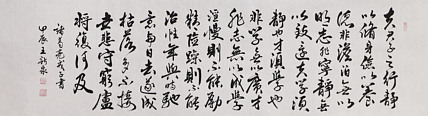 夫君子之行静
以修身俭以养
德非澹泊无以
明志非宁静无
以致远夫学须
静也才须学也
非学无以广才
非志无以成学
淫慢则不能励
精险躁则不能
治性年与时驰
意与日去遂成
枯落多不接
世悲守穷庐
将复何及
诸葛亮诫子书
甲辰王